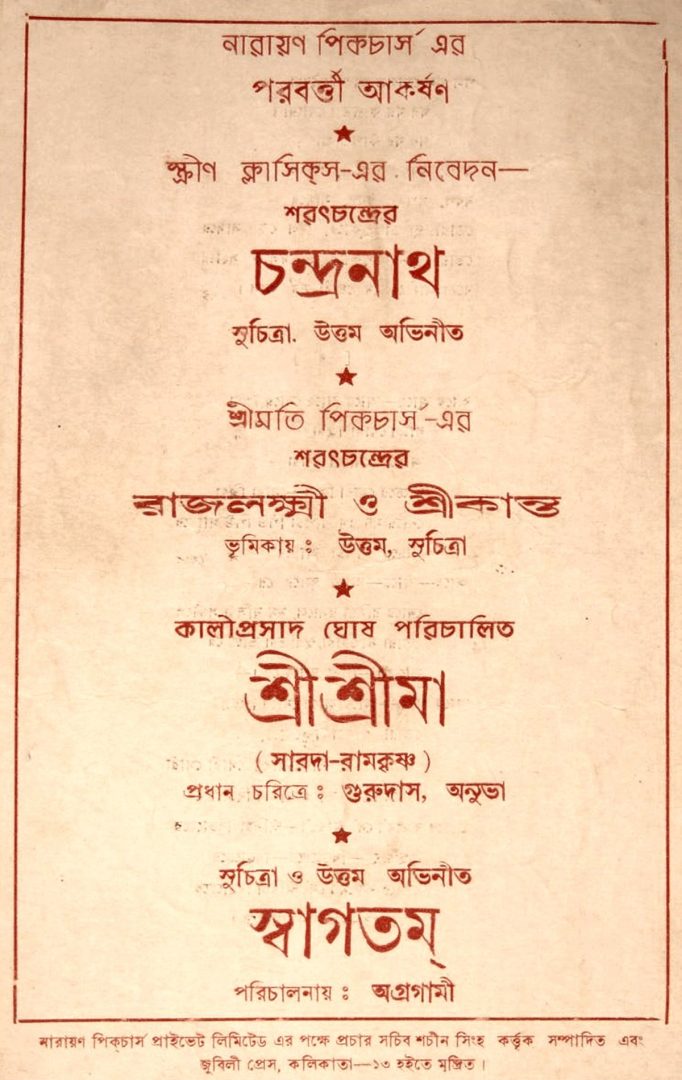 নারায়ণ পিকচার্স এর
পরবর্ত্তী আকর্ষণ
স্ক্রীণ ক্লাসিক্‌স-এর নিবেদন—
শরৎচন্দ্রের
চন্দ্রনাথ
সুচিত্রা. উত্তম অভিনীত
শ্রীমতি পিকচার্স-এর
শরৎচন্দ্রের
রাজলক্ষ্মী ও শ্রীকান্ত
ভূমিকায় : উত্তম, সুচিত্রা
কালীপ্রসাদ ঘোষ পরিচালিত
শ্রীশ্রীমা
( সারদা-রামকৃষ্ণ )
প্রধান চরিত্রে : গুরুদাস, অনুভা
সুচিত্রা ও উত্তম অভিনীত
স্বাগতম্
পরিচালনায় : অগ্রগামী
নারায়ণ পিক্‌চার্স প্রাইভেট লিমিটেড এর পক্ষে প্রচার সচিব শচীন সিংহ কর্ত্তৃক সম্পাদিত এবং
জুবিলী প্রেস, কলিকাতা—১৩ হইতে মুদ্রিত।